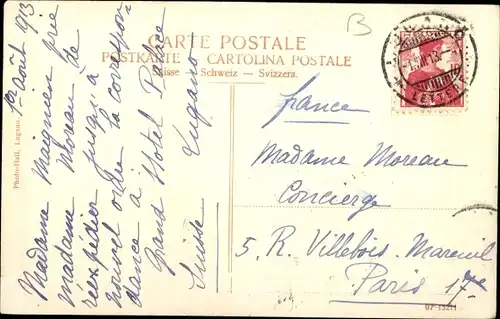 B
CARTE POSTALE
POSTKARTE - CARTOLINA POSTALE
Suisse - Schweiz - Svizzera.
LETTER
1er Août 1913
Madame Maignien prie
madame Moreau de
réexpédier jusqu'à
nouvel ordre la correspon-
dance à Grand Hôtel Palace
Lugano
Suisse
Photo-Hall, Lugano.
France
Madame Moreau
Concierge
5, R. Villebois-Mareuil
Paris 17e